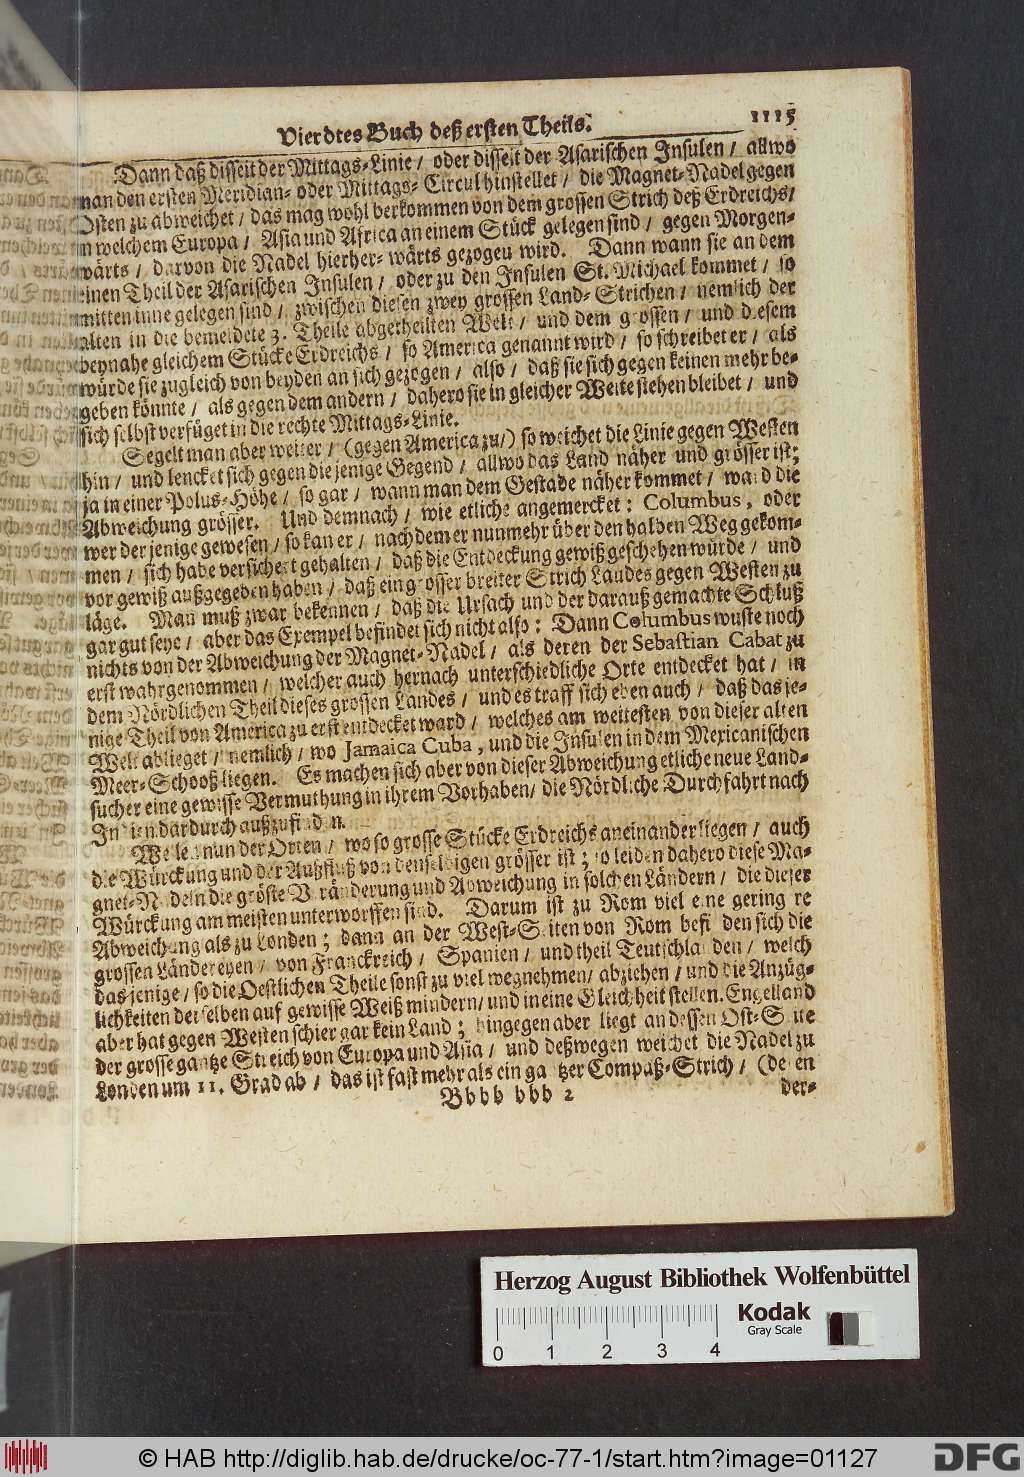 Vierdtes Buch deß ersten Theils. 1115
Dann daß disseit der Mittags-Linie / oder disseit der Asarischen Insulen / allwo
man den ersten Meridian- oder Mittags-Circul hinstellet / die Magnet-Nadel gegen
Osten zu abweichet / das mag wohl herkommen von dem grossen Strich deß Erdreichs /
in welchem Europa / Asia und Africa an einem Stück gelegen sind / gegen Morgen-
wärts / darvon die Nadel hierher-wärts gezogeu wird. Dann wann sie an dem
einen Theil der Asarischen Insulen / oder zu den Insulen St. Michael kommet / so
mitten inne gelegen sind / zwischen diesen zwey grossen Land-Strichen / nemlich der
alten in die bemeldete 3. Theile abgetheilten Welt / und dem grossen / und diesem
beynahe gleichem Stücke Erdreichs / so America genannt wird / so schreibet er / als
würde sie zugleich von beyden an sich gezogen / also / daß sie sich gegen keinen mehr be-
geben könnte / als gegen dem andern / dahero sie in gleicher Weite stehen bleibet / und
sich selbst verfüget in die rechte Mittags-Linie.
Segelt man aber weiter / (gegen America zu /) so weichet die Linie gegen Westen
hin / und lencket sich gegen die jenige Gegend / allwo das Land näher und grösser ist;
ja in einer Polus-Höhe / so gar / wann man dem Gestade näher kommet / ward die
Abweichung grösser. Und demnach / wie etliche angemercket: Columbus, oder
wer der jenige gewesen / so kan er / nach dem er nunmehr über den halben Weg gekom-
men / sich habe versichert gehalten / daß die Entdeckung gewiß geschehen würde / und
vor gewiß außgegeben haben / daß ein grosser breiter Strich Landes gegen Westen zu
läge. Man muß zwar bekennen / daß die Ursach und der darauß gemachte Schluß
gar gut seye / aber das Exempel befindet sich nicht also: Dann Columbus wuste noch
nichts von der Abweichung der Magnet-Nadel / als deren der Sebastian Cabat zu
erst wahrgenommen / welcher auch hernach unterschiedliche Orte entdecket hat / in
dem Nördlichen Theil dieses grossen Landes / und es traff sich eben auch / daß das je-
nige Theil von America zu erst entdecket ward / welches am weitesten von dieser alten
Welt ablieget / nemlich / wo Jamaica Cuba, und die Insulen in dem Mexicanischen
Meer-Schooß liegen. Es machen sich aber von dieser Abweichung etliche neue Land-
sucher eine gewisse Vermuthung in ihrem Vorhaben / die Nördliche Durchfahrt nach
Indien dardurch außzufinden.
Weilen nun der Orten / wo so grosse Stücke Erdreichs aneinander liegen / auch
die Würckung und der Außfluß von denselbigen grösser ist; so leiden dahero diese Ma-
gnet-Nadeln die gröste Veränderung und Abweichung in solchen Ländern / die dieser
Würckung am meisten unterworffen sind. Darum ist zu Rom viel eine geringere
Abweichung als zu Londen; dann an der West-Seiten von Rom befinden sich die
grossen Ländereyen / von Franckreich / Spanien / und theil Teutschlanden / welch
das jenige / so die Oestlichen Theile sonst zu viel wegnehmen / abziehen / und die Anzüg-
lichkeiten derselben auf gewisse Weiß mindern / und in eine Gleichheit stellen. Engelland
aber hat gegen Westen schier gar kein Land; hingegen aber liegt an dessen Ost-Seite
der grosse gantze Streich von Europa und Asia / und deßwegen weichet die Nadel zu
Londen um 11. Grad ab / das ist fast mehr als ein gantzer Compaß-Strich / (deren
Bbbb bbb 2 der-
Herzog August Bibliothek Wolfenbüttel
Kodak
Gray Scale
0 1 2 3 4
© HAB http://diglib.hab.de/drucke/oc-77-1/start.htm?image=01127
DFG